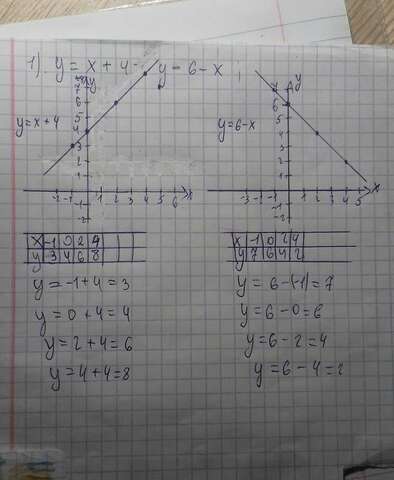 1) y = x + 4   y = 6 - x
y = x + 4   y = 6 - x
y   y
7   7
6   6
5   5
4   4
3   3
2   2
1   1
-2 -1 1 2 3 4 5 6 x   -3 -2 -1 1 2 3 4 5 x
-1   -1
-2   -2
x -1 0 2 4   x -1 0 2 4
y 3 4 6 8   y 7 6 4 2
y = -1 + 4 = 3   y = 6 - (-1) = 7
y = 0 + 4 = 4   y = 6 - 0 = 6
y = 2 + 4 = 6   y = 6 - 2 = 4
y = 4 + 4 = 8   y = 6 - 4 = 2